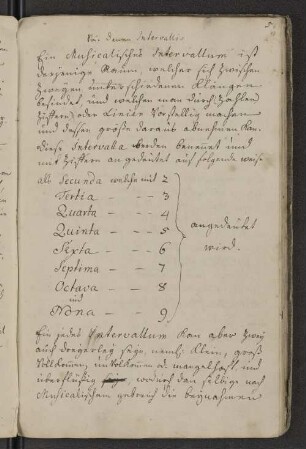 Von denen Intervallis
Ein Musicalisches Intervallum ist
derjenige Raum, welcher sich zwischen
zweyen unterschiedenen Klangen
befindet, und welchen man durch Zahlen
Ziffern oder Linien vorstellig machen
und dessen größe daraus abnehmen kan.
Diese Intervalla werden benennet und
mit Ziffern angedeutet auf folgende weise
als Secunda welche mit 2
Tertia — — 3
Quarta — — 4
Quinta — — 5
Sexta — — 6
Septima — — 7
Octava — — 8
und
Nona — — 9
angedeutet
wird.
Ein jedes Intervallum kan aber zwey
auch dreyerley seyn, nemlich klein, groß
vollkomen, unvollkomen od. mangelhaft, und
überflüßig, wodurch den selbige nach
Musicalischem gebrauch die beynahmen